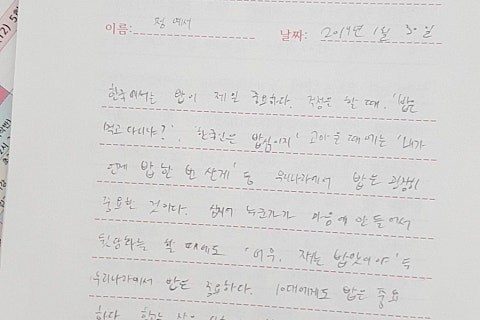 이름: 정예서
날짜: 2019년 1월 30일
한국에서는 밥이 제일 중요하다. 걱정을 할 때, '밥은
먹고 다니냐?', 한국인은 밥심이지' 고마울 때에는 '내가
언제 밥 한 번 살게' 등 우리나라에서 밥은 굉장히
중요한 것이다. 심지어 누군가가 마음에 안 들어서
뒷담화를 할 때에도 '어우, 쟤는 밥맛이야' 등
우리나라에서 만큼 중요하다. 10대에게도 밥은 중요
하다.